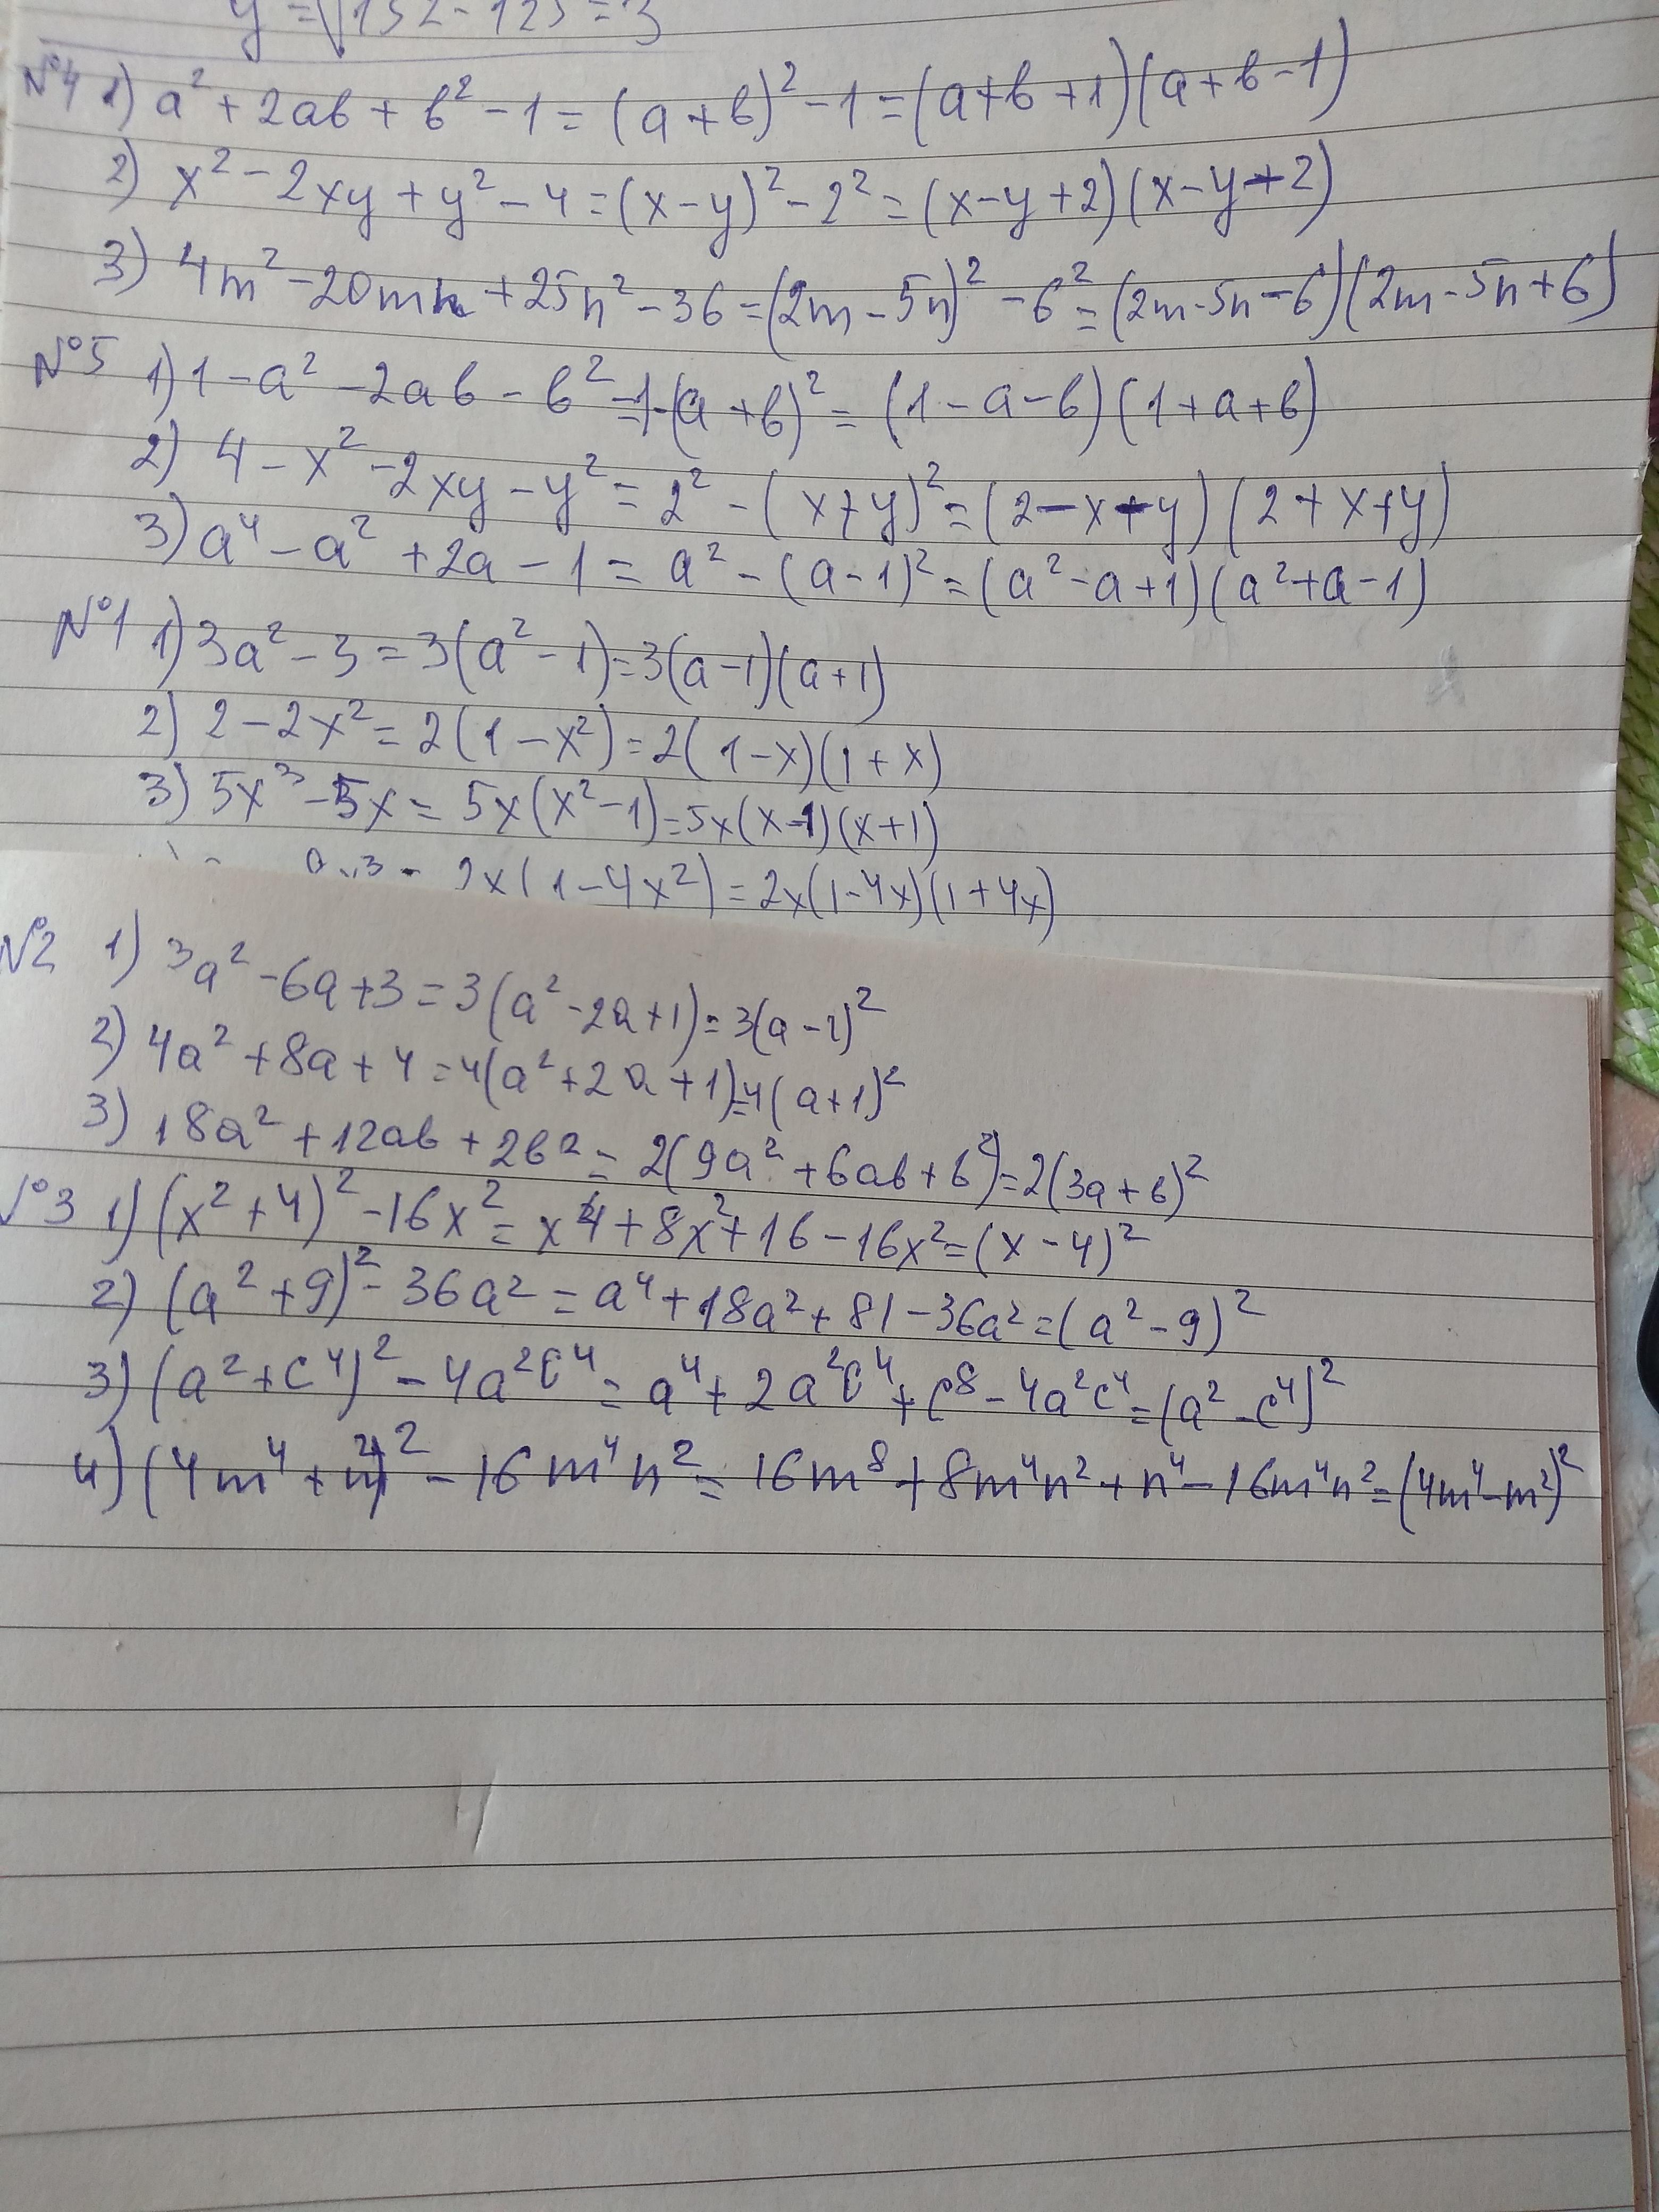 y = √152 - 123 = 3
№4 1) a² + 2ab + b² - 1 = (a + b)² - 1 = (a + b + 1)(a + b - 1)
2) x² - 2xy + y² - 4 = (x - y)² - 2² = (x - y + 2)(x - y + 2)
3) 4m² - 20mn + 25n² - 36 = (2m - 5n)² - 6² = (2m - 5n - 6)(2m - 5n + 6)
№5 1) 1 - a² - 2ab - b² = 1 - (a + b)² = (1 - a - b)(1 + a + b)
2) 4 - x² - 2xy - y² = 2² - (x + y)² = (2 - x - y)(2 + x + y)
3) a⁴ - a² + 2a - 1 = a² - (a - 1)² = (a² - a + 1)(a² + a - 1)
№1 1) 3a² - 3 = 3(a² - 1) = 3(a - 1)(a + 1)
2) 2 - 2x² = 2(1 - x²) = 2(1 - x)(1 + x)
3) 5x³ - 5x = 5x(x² - 1) = 5x(x - 1)(x + 1)
2x(1 - 4x²) = 2x(1 - 4x)(1 + 4x)
№2 1) 3a² - 6a + 3 = 3(a² - 2a + 1) = 3(a - 1)²
2) 4a² + 8a + 4 = 4(a² + 2a + 1) = 4(a + 1)²
3) 18a² + 12ab + 2b² = 2(9a² + 6ab + b²) = 2(3a + b)²
№3 1) (x² + 4)² - 16x² = x⁴ + 8x² + 16 - 16x² = (x - 4)²
2) (a² + 9)² - 36a² = a⁴ + 18a² + 81 - 36a² = (a² - 9)²
3) (a² + c⁴)² - 4a²c⁴ = a⁴ + 2a²c⁴ + c⁸ - 4a²c⁴ = (a² - c⁴)²
4) (4m⁴ + n²)² - 16m⁴n² = 16m⁸ + 8m⁴n² + n⁴ - 16m⁴n² = (4m⁴ - m²)²